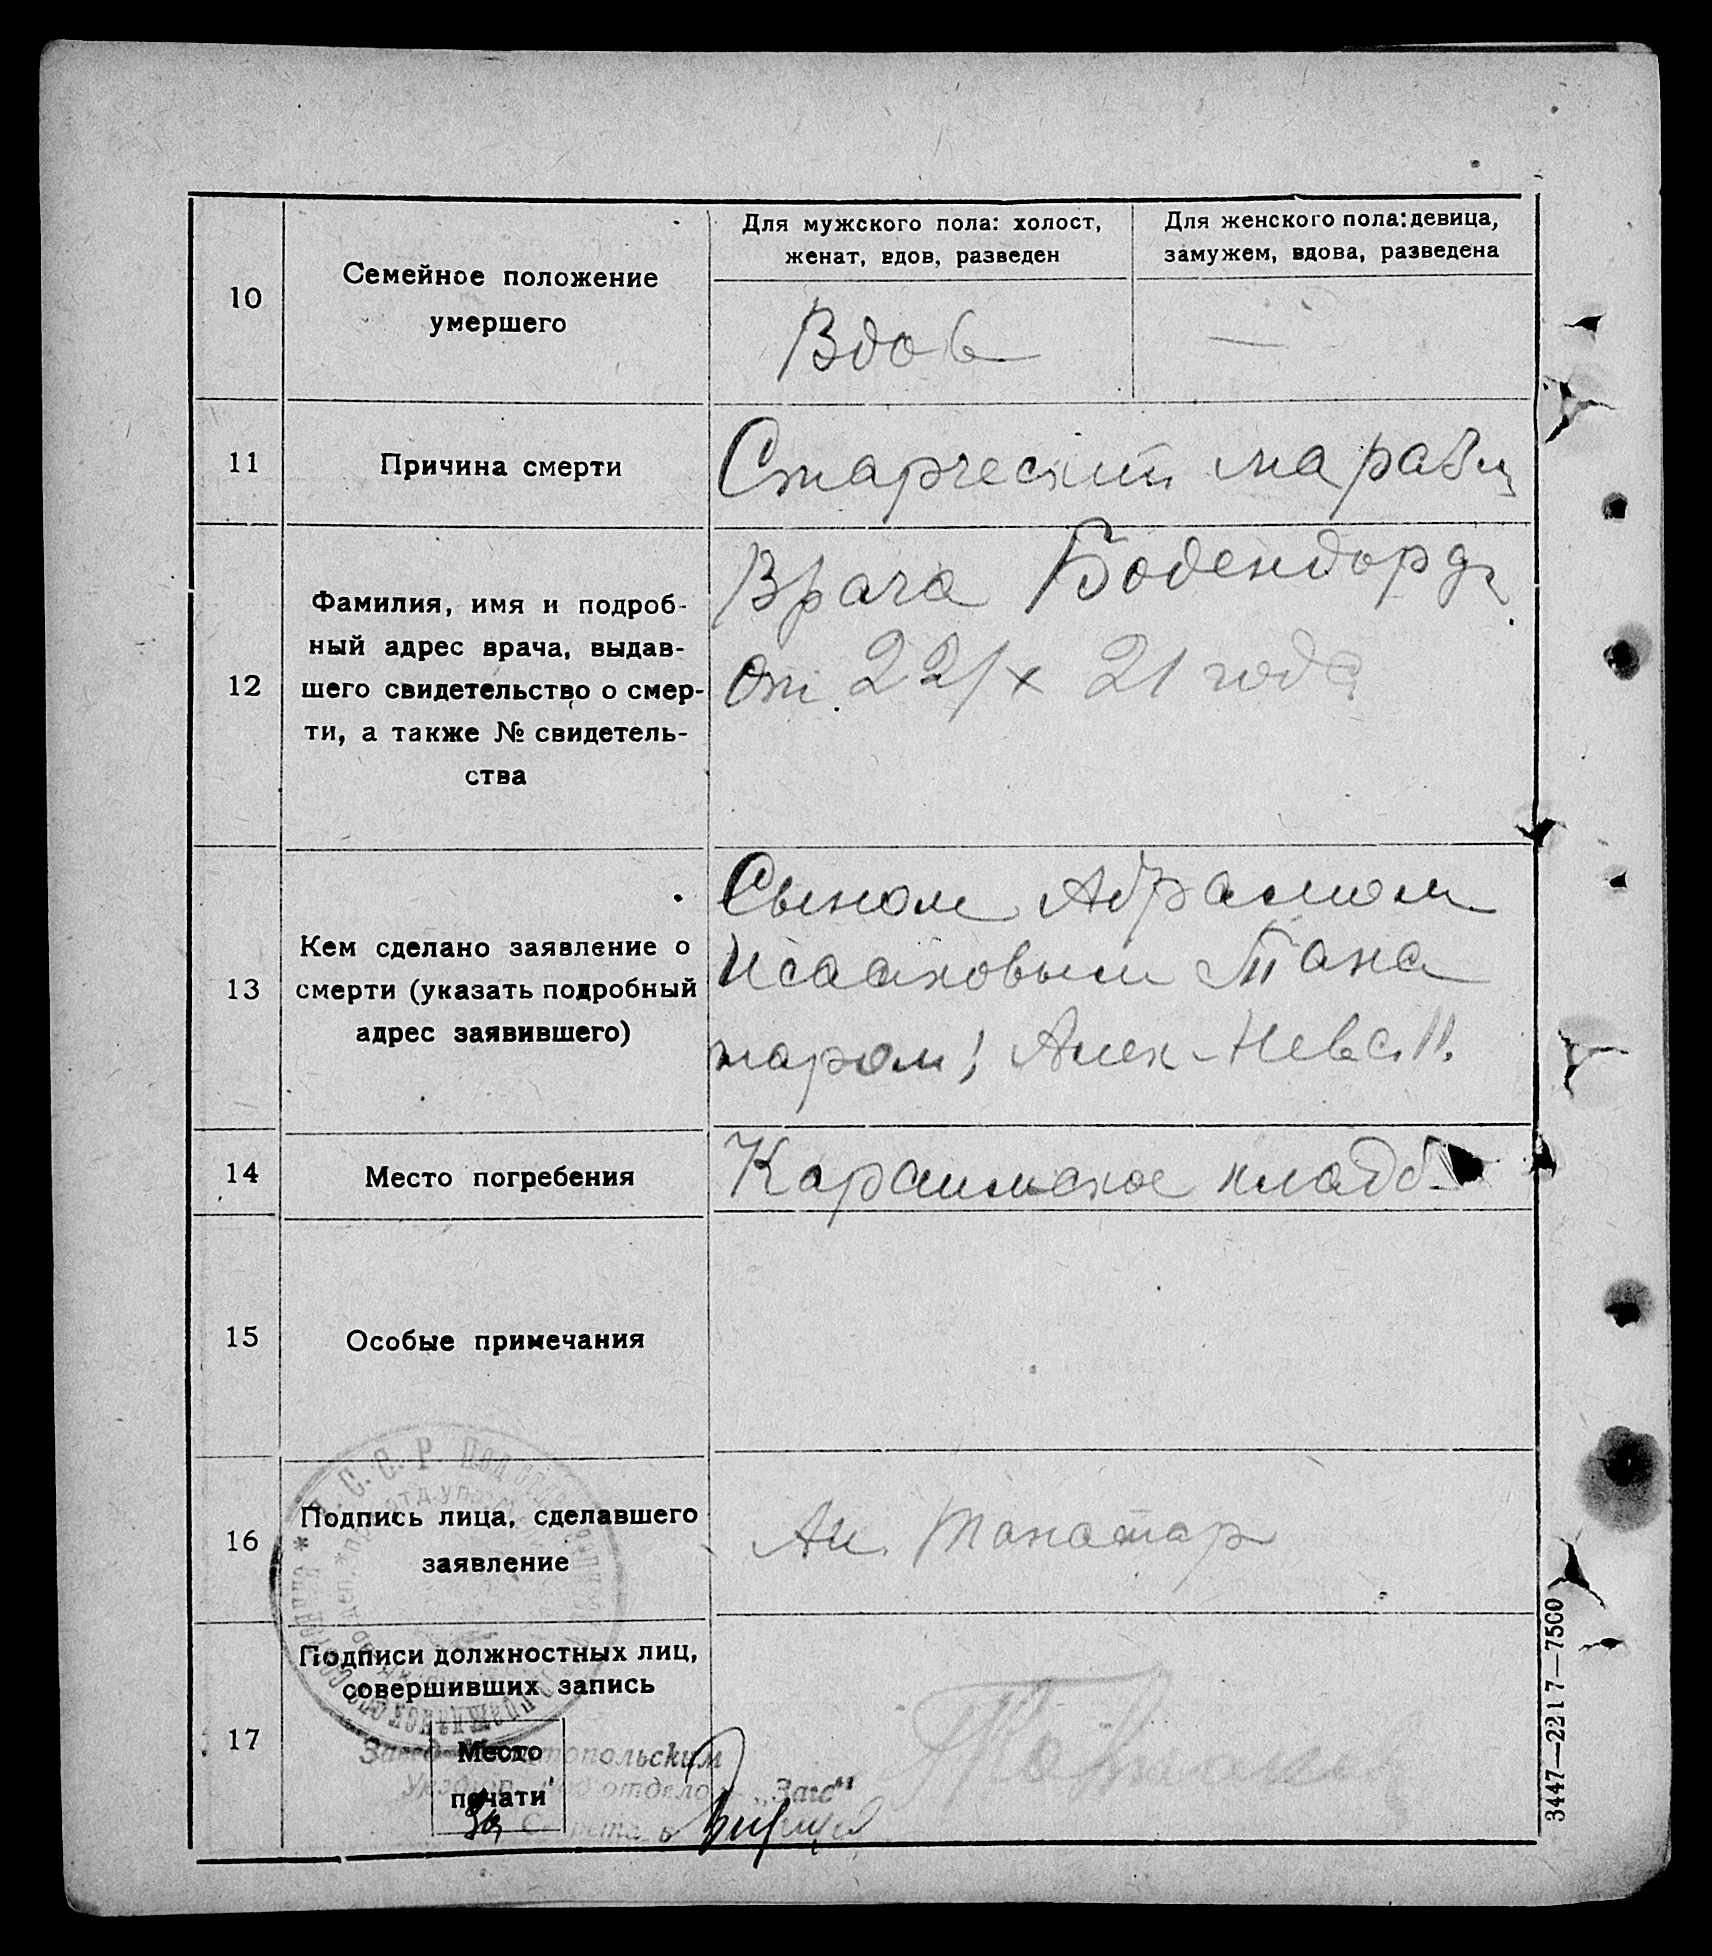 10
Семейное положение
умершего
Для мужского пола: холост,
женат, вдов, разведен
Для женского пола: девица,
замужем, вдова, разведена
Вдов
—
11
Причина смерти
Старческий маразм
12
Фамилия, имя и подроб-
ный адрес врача, выдав-
шего свидетельство о смер-
ти, а также № свидетель-
ства
Врача Бодендорф
от 22/х 21 года
13
Кем сделано заявление о
смерти (указать подробный
адрес заявившего)
Сыном Абрамом
Исааковым Тана
таром; Алек-Невс. 11.
14
Место погребения
Караимское кладб.
15
Особые примечания
16
Подпись лица, сделавшего
заявление
Аи. Танатар
17
Подписи должностных лиц,
совершивших запись
Место
печати
отдел „Загс"
3447—2217—7500